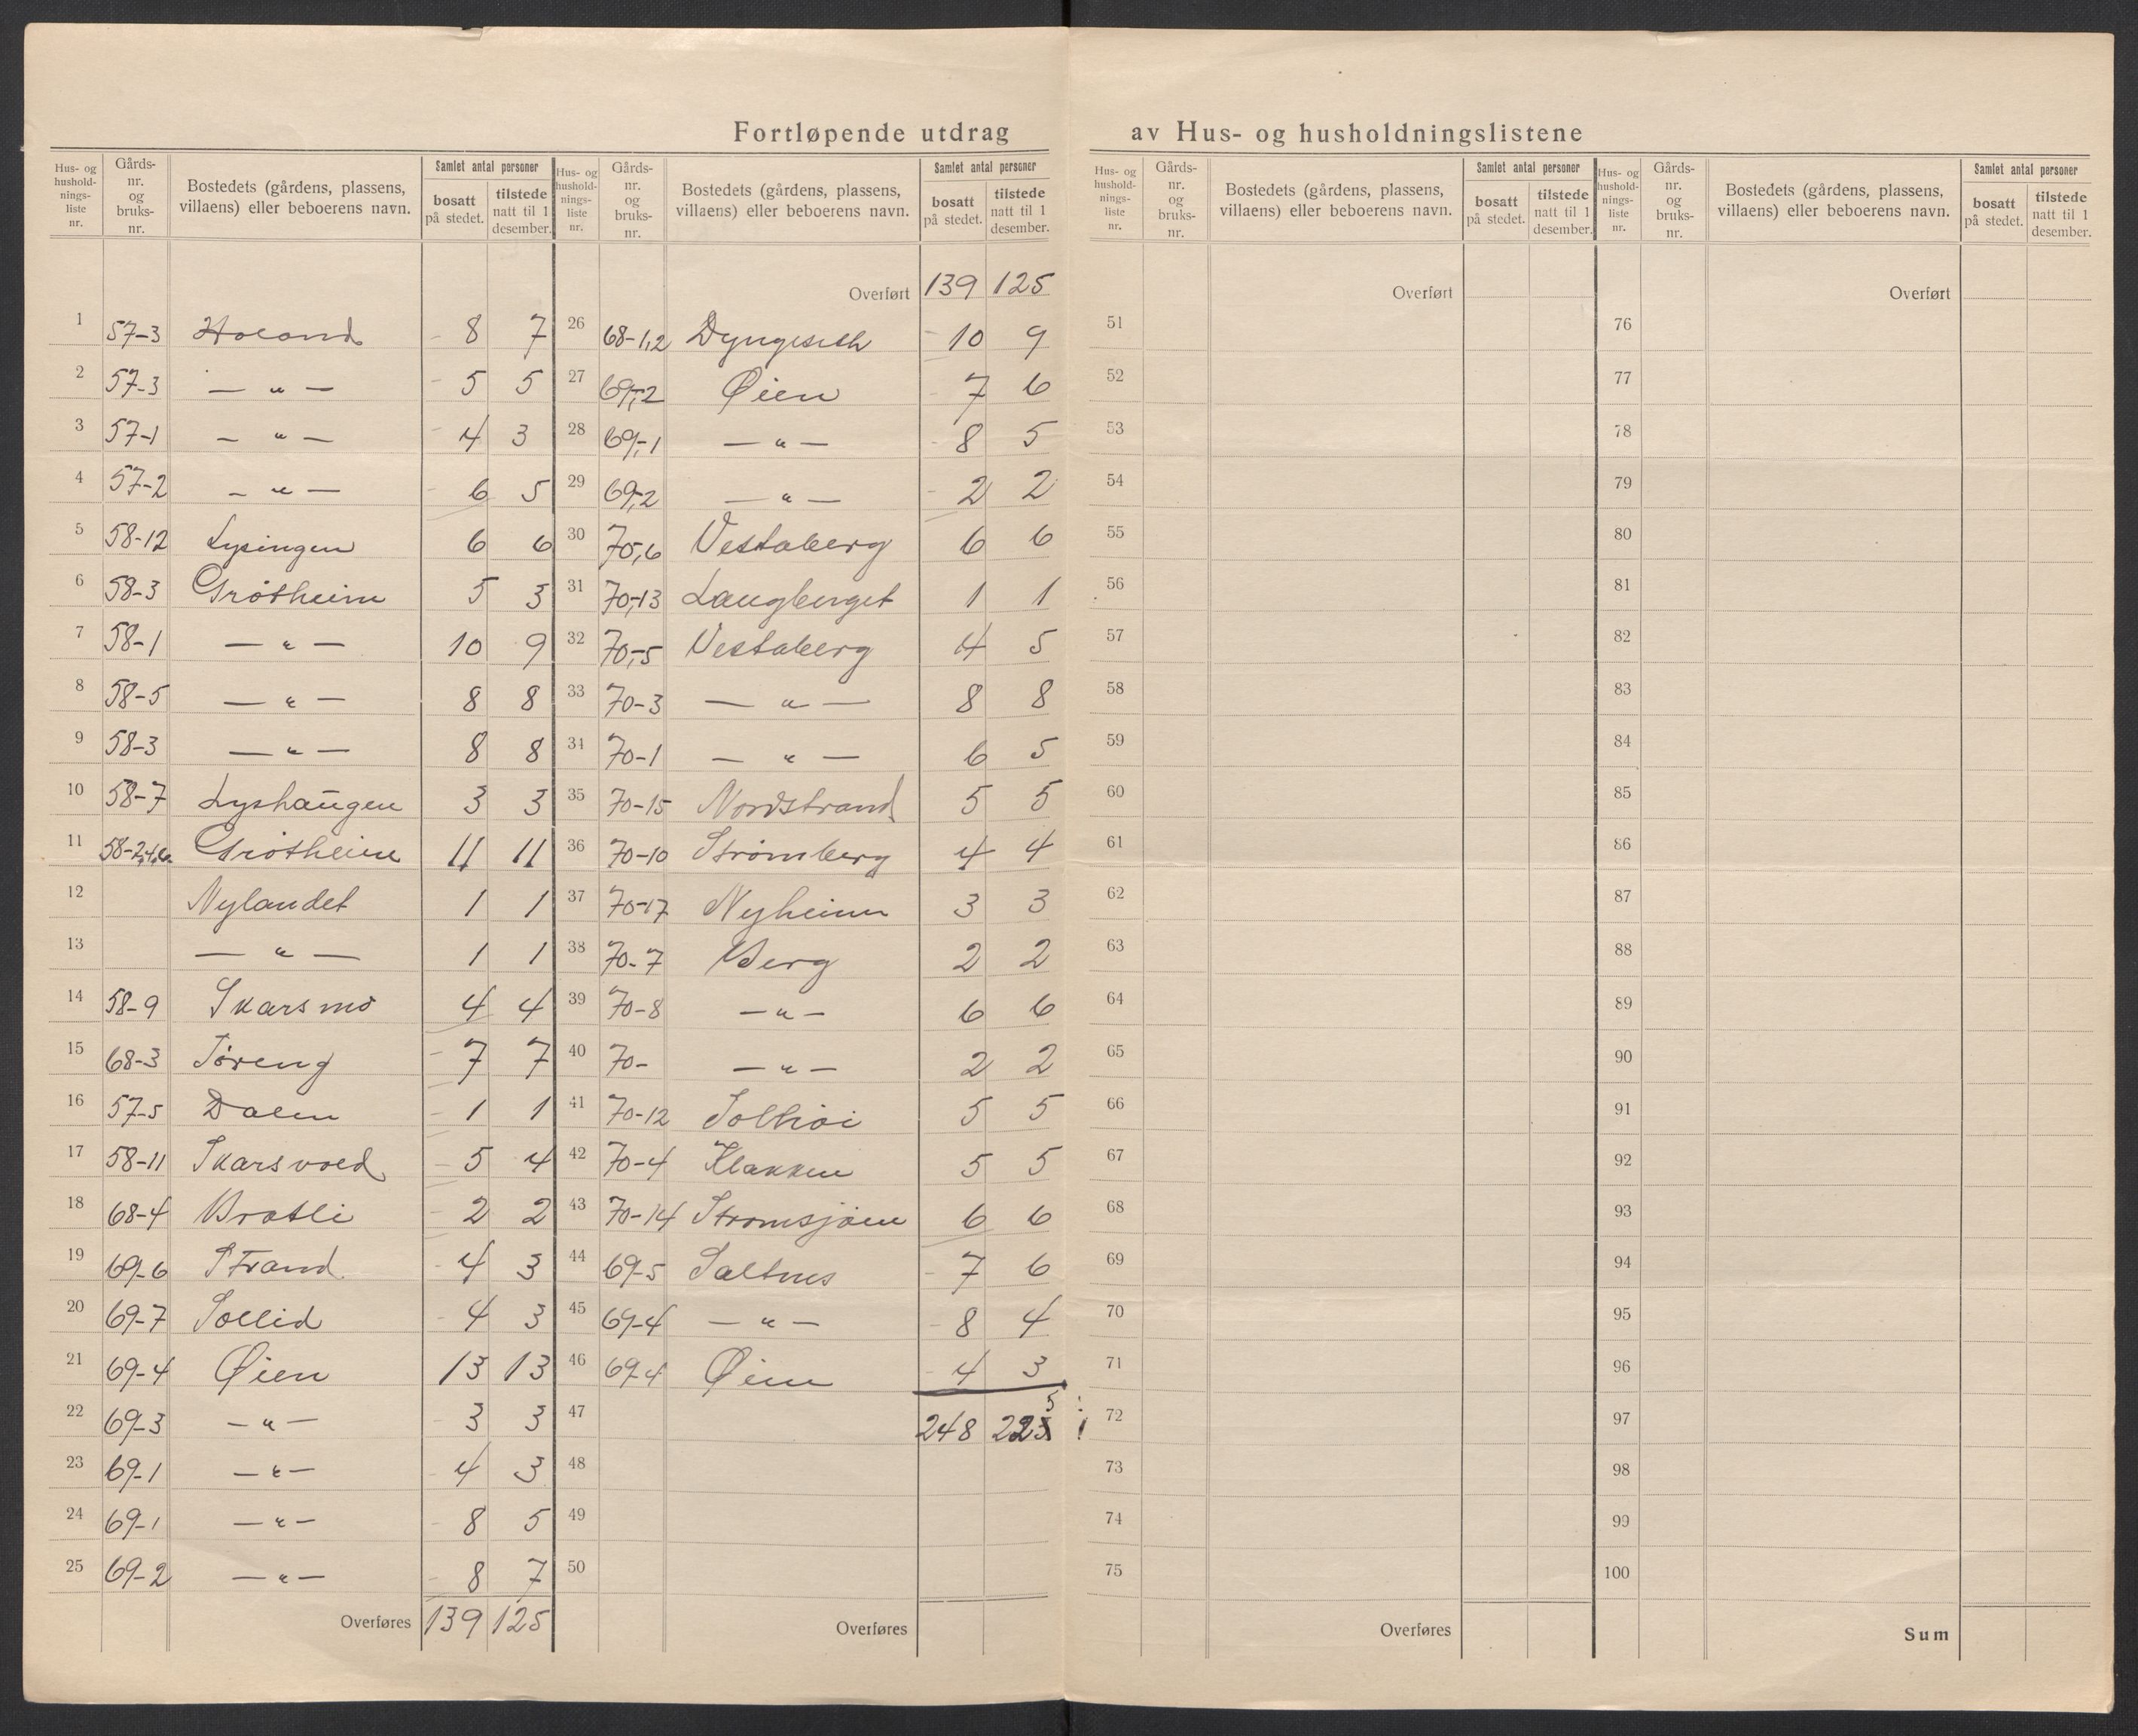 Fortløpende utdrag av Hus- og husholdningslistene
Hus- og husholdningsliste nr. Gårds-nr. og bruks-nr. Bostedets (gårdens, plassens, villaens) eller beboerens navn. Samlet antal personer bosatt på stedet. tilstede natt til 1 desember.
1 57-3 Holand 8 7
2 57-3 — " — 5 5
3 57-1 — " — 4 3
4 57-2 — " — 6 5
5 58-12 Lysingen 6 6
6 58-3 Grøtheim 5 3
7 58-1 — " — 10 9
8 58-5 — " — 8 8
9 58-3 — " — 8 8
10 58-7 Lyshaugen 3 3
11 58-2,4,6 Grøtheim 11 11
12 Nylandet 1 1
13 — " — 1 1
14 58-9 Skarsmo 4 4
15 68-3 Tøreng 7 7
16 57-5 Dalen 1 1
17 58-11 Skarsvold 5 4
18 68-4 Bratli 2 2
19 69-6 Strand 4 3
20 69-7 Sollid 4 3
21 69-4 Øien 13 13
22 69-3 — " — 3 3
23 69-1 — " — 4 3
24 69-1 — " — 8 5
25 69-2 — " — 8 7
Overføres 139 125
Hus- og husholdningsliste nr. Gårds-nr. og bruks-nr. Bostedets (gårdens, plassens, villaens) eller beboerens navn. Samlet antal personer bosatt på stedet. tilstede natt til 1 desember.
Overført 139 125
26 68-1,2 10 9
27 69,-2 Øien 7 6
28 69,-1 — " — 8 5
29 69,2 — " — 2 2
30 70,6 Vestaberg 6 6
31 70,-13 Langberget 1 1
32 70,-5 Vestaberg 4 5
33 70-3 — " — 8 8
34 70-1 — " — 6 5
35 70-15 Nordstrand 5 5
36 70-10 Strømberg 4 4
37 70-17 Nyheim 3 3
38 70-7 Berg 2 2
39 70-8 — " — 6 6
40 70- — " — 2 2
41 70-12 Solhøi 5 5
42 70-4 Klakken 5 5
43 70-14 Strømsjøen 6 6
44 69-5 Saltnes 7 6
45 69-4 — " — 8 4
46 69-4 Øien 4 3
47 248 223 5
48
49
50
Overføres
Hus- og husholdningsliste nr. Gårds-nr. og bruks-nr. Bostedets (gårdens, plassens, villaens) eller beboerens navn. Samlet antal personer bosatt på stedet. tilstede natt til 1 desember.
Overført
51
52
53
54
55
56
57
58
59
60
61
62
63
64
65
66
67
68
69
70
71
72
73
74
75
Overføres
Hus- og husholdningsliste nr. Gårds-nr. og bruks-nr. Bostedets (gårdens, plassens, villaens) eller beboerens navn. Samlet antal personer bosatt på stedet. tilstede natt til 1 desember.
Overført
76
77
78
79
80
81
82
83
84
85
86
87
88
89
90
91
92
93
94
95
96
97
98
99
100
Sum